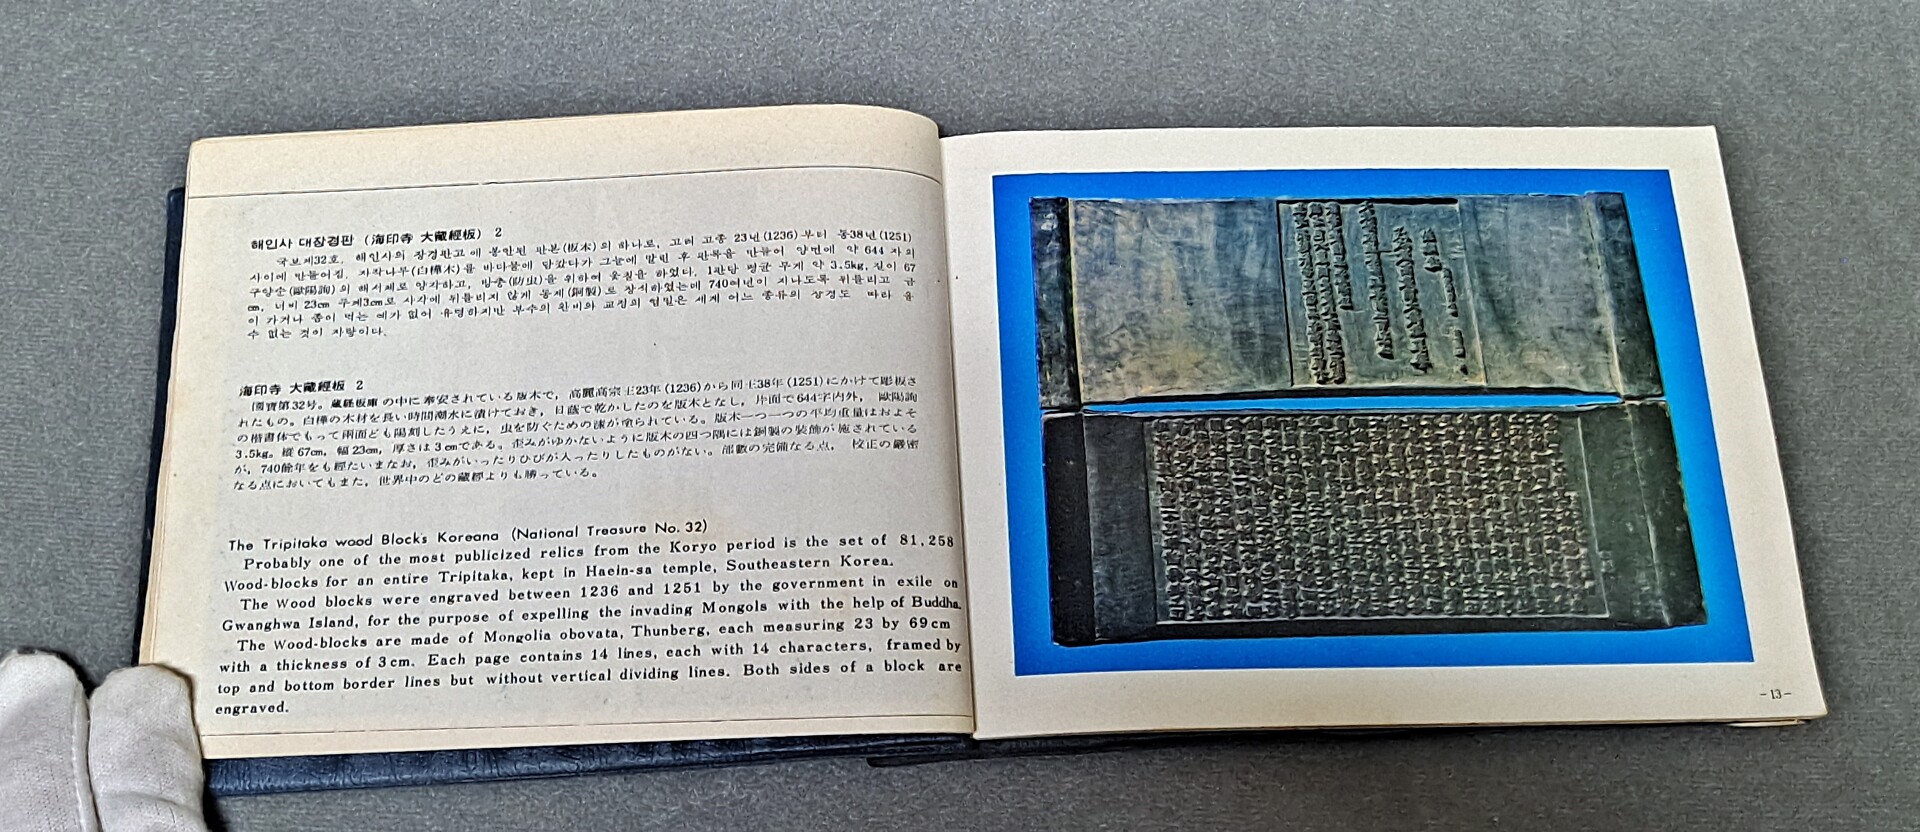 해인사 대장경판 (海印寺 大藏經板) 2
국보제32호. 해인사의 장경판고에 봉안된 판본(板本)의 하나로, 고려 고종 23년(1236)부터 동38년(1251)
사이에 만들어짐. 자작나무(白樺木)를 바다물에 담갔다가 그늘에 말린 후 판목을 만들어 양면에 약 644 자의
구양순(歐陽詢)의 해서체로 양각하고, 방충(防虫)을 위하여 옻칠을 하였다. 1판당 평균 무게 약 3.5kg, 길이 67
cm, 너비 23cm 두께3cm로 사각에 뒤틀리지 않게 동제(銅製)로 장식하였는데 740여년이 지나도록 뒤틀리고 금
이 가거나 좀이 먹는 예가 없어 유명하지만 부수의 완비와 교정의 엄밀은 세계 어느 종류의 장경도 따라 올
수 없는 것이 자랑이다.
海印寺 大藏經板 2
國寶第32号。藏経板庫の中に奉安されている版木で, 高麗高宗王23年(1236)から同王38年(1251)にかけて彫板さ
れたもの。白樺の木材を長い時間潮水に漬けておき, 日蔭で乾かしたのを版木となし, 片面で644字内外, 歐陽詢
の楷書体でもって兩面とも陽刻したうえに, 虫を防ぐための漆が塗られている。版木一つ一つの平均重量はおよそ
3.5kg。縦67cm, 幅23cm, 厚さは3cmである。歪みがゆかないように版木の四つ隅には銅製の装飾が施されている
が, 740餘年をも經たいまなお, 歪みがいったりひびが入ったりしたものがない。部數の完備なる点, 校正の嚴密
なる点においてもまた, 世界中のどの藏經よりも勝っている。
The Tripitaka wood Blocks Koreana (National Treasure No. 32)
Probably one of the most publicized relics from the Koryo period is the set of 81,258
Wood-blocks for an entire Tripitaka, kept in Haein-sa temple, Southeastern Korea.
The Wood blocks were engraved between 1236 and 1251 by the government in exile on
Gwanghwa Island, for the purpose of expelling the invading Mongols with the help of Buddha.
The Wood-blocks are made of Mongolia obovata, Thunberg, each measuring 23 by 69cm
with a thickness of 3cm. Each page contains 14 lines, each with 14 characters, framed by
top and bottom border lines but without vertical dividing lines. Both sides of a block are
engraved.
-13-